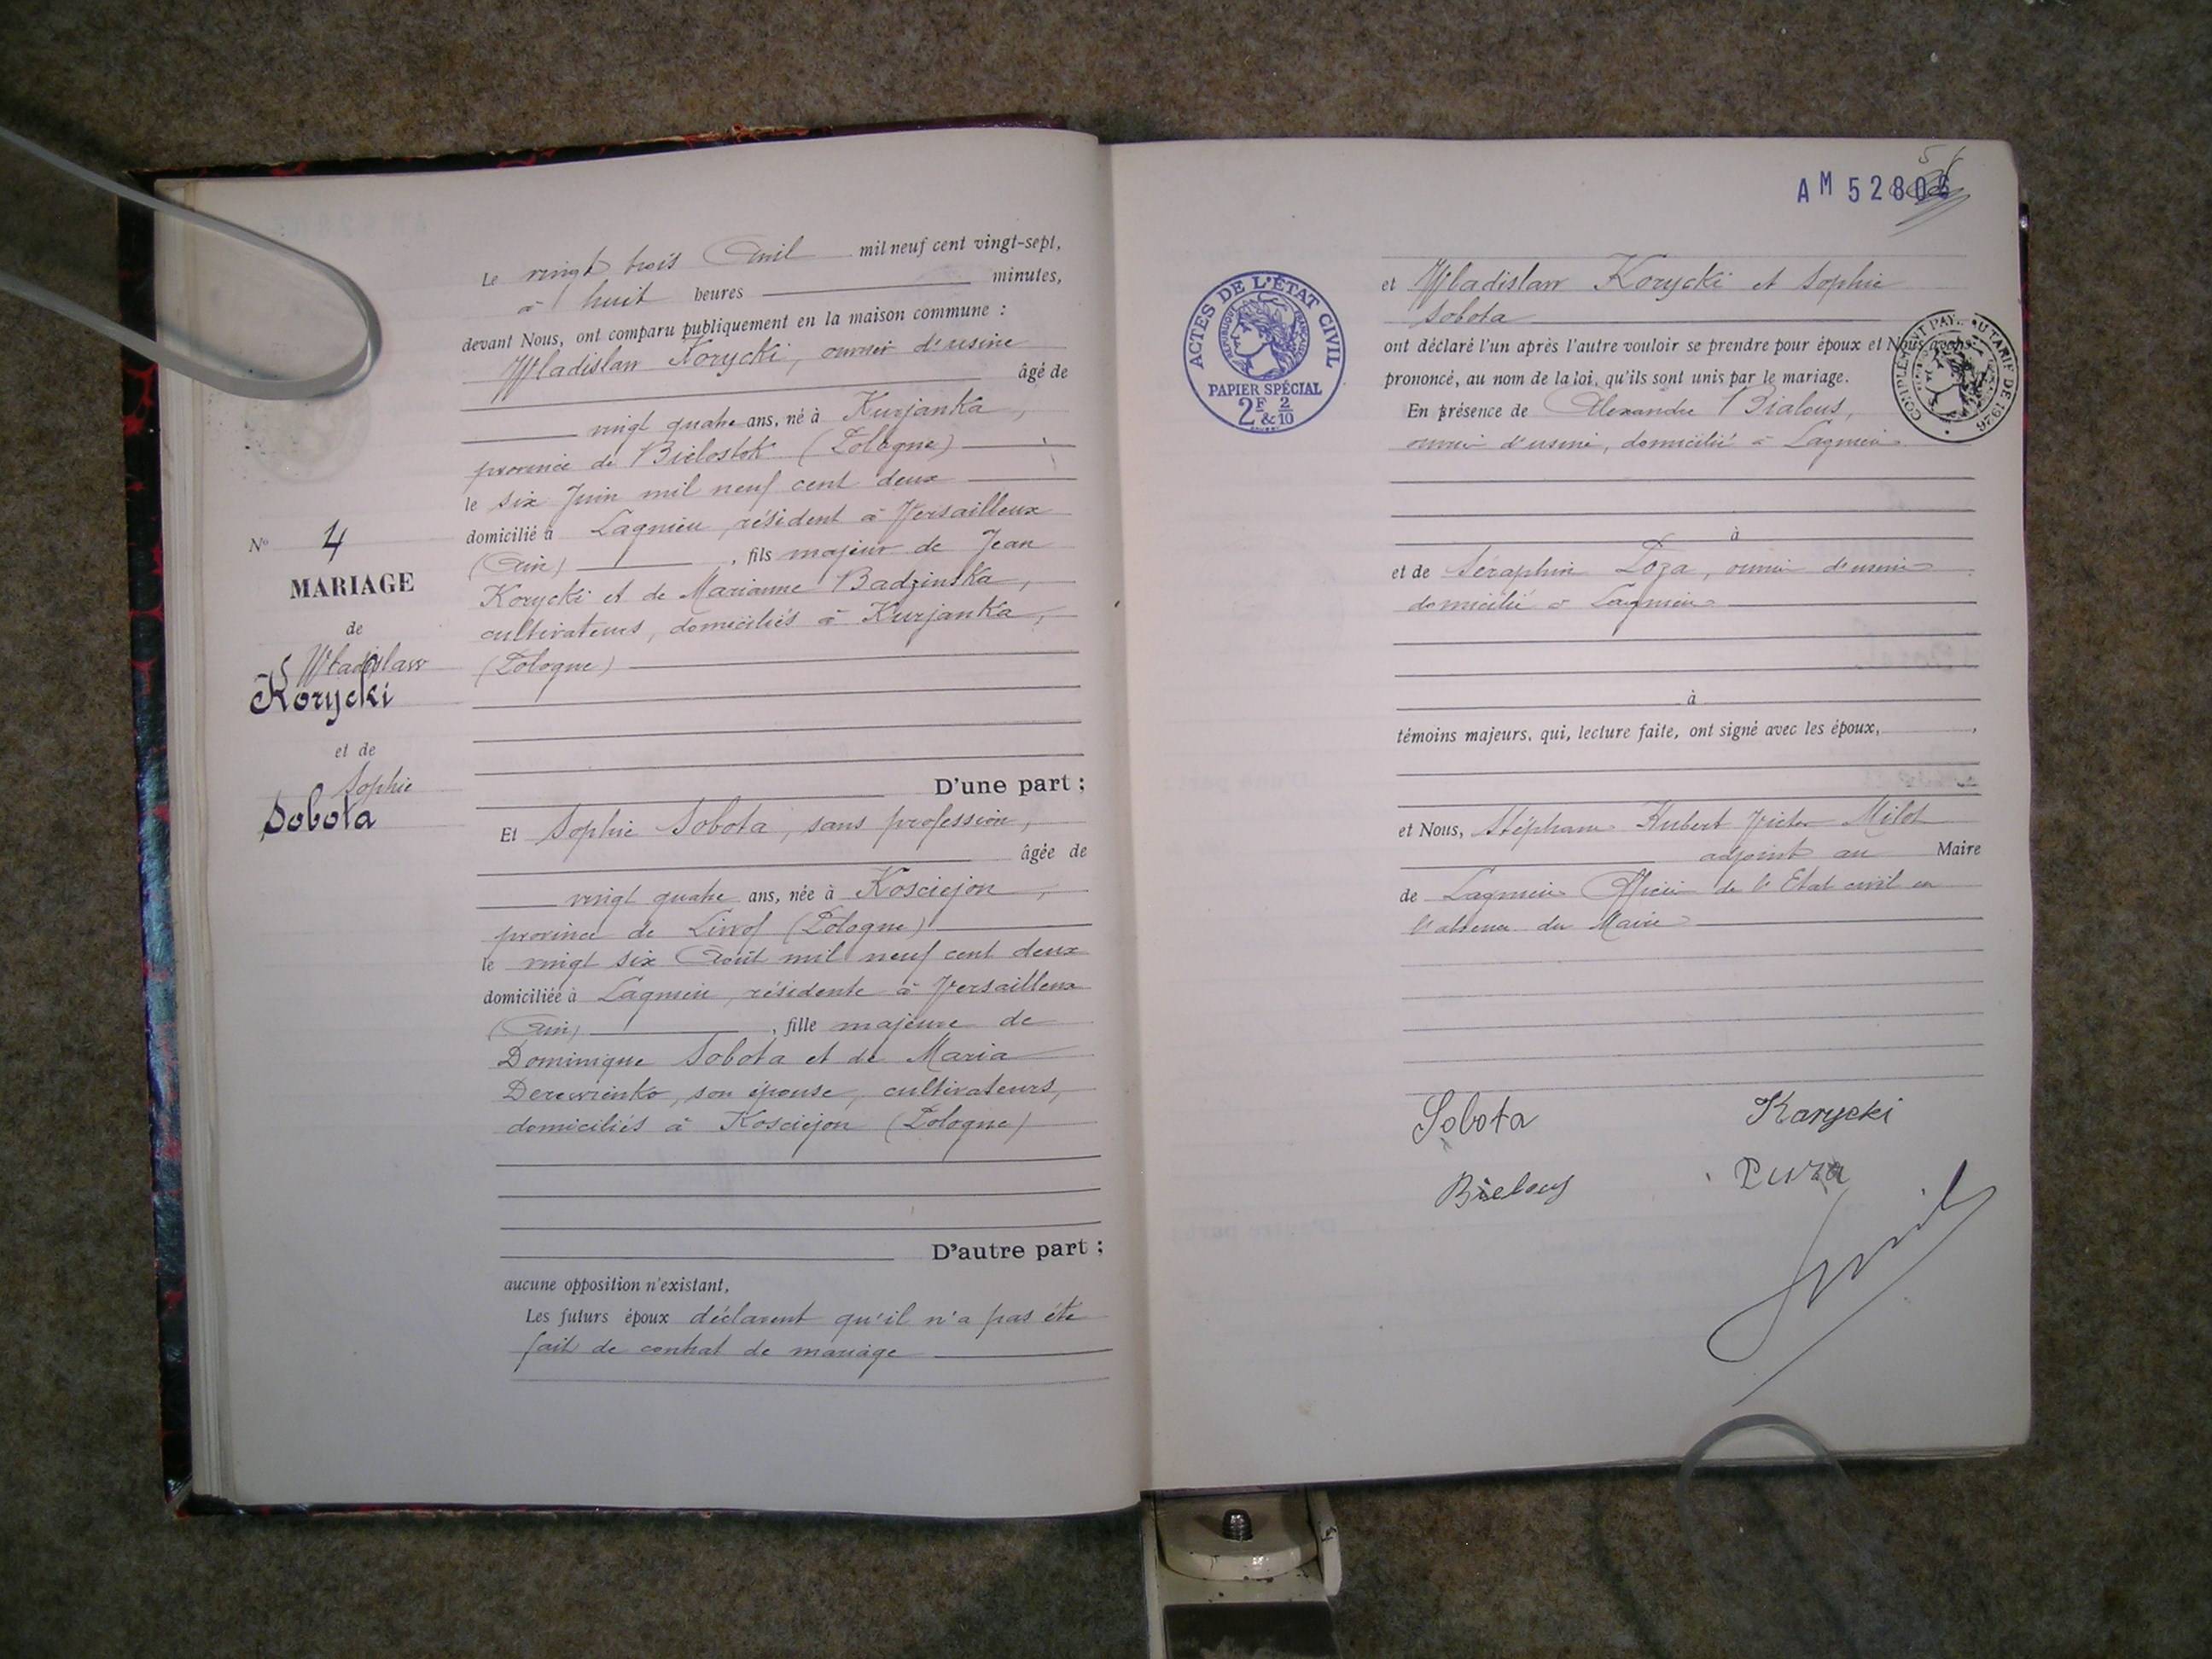 Le vingt trois Avril mil neuf cent vingt-sept,
à huit heures minutes,
devant Nous, ont comparu publiquement en la maison commune :
Wladislaw Korycki, ouvrier d'usine
âgé de
vingt quatre ans, né à Kurjanka,
province de Bielostok (Pologne)
le six Juin mil neuf cent deux
domicilié à Lagnieu, résident à Versailleux
(Ain), fils majeur de Jean
Korycki et de Marianne Badzinska,
cultivateurs, domiciliés à Kurjanka,
(Pologne)
No 4
MARIAGE
de
Wladislaw
Korycki
et de
Sophie
Sobota
D'une part ;
Et Sophie Sobota, sans profession,
âgée de
vingt quatre ans, née à Kosciejon,
province de Livrof (Pologne)
le vingt six Août mil neuf cent deux
domiciliée à Lagnieu, résidente à Versailleux
(Ain), fille majeure de
Dominique Sobota et de Maria
Derewienko, son épouse, cultivateurs,
domiciliés à Kosciejon (Pologne)
D'autre part ;
aucune opposition n'existant,
Les futurs époux déclarent qu'il n'a pas été
fait de contrat de mariage
AM 52806
ACTES DE L'ÉTAT CIVIL
REPUBLIQUE FRANÇAISE
PAPIER SPÉCIAL
2F & 2/10
et Wladislaw Korycki et Sophie
Sobota
ont déclaré l'un après l'autre vouloir se prendre pour époux et Nous avons
prononcé, au nom de la loi, qu'ils sont unis par le mariage.
COMPLÉMENT PAYÉ AU TARIF DE 1926
En présence de Alexandre Bialous,
ouvrier d'usine, domicilié à Lagnieu
à
et de Séraphin Poza, ouvrier d'usine
domicilié à Lagnieu
à
témoins majeurs, qui, lecture faite, ont signé avec les époux,
et Nous, Stéphane Hubert Victor Milot
adjoint au Maire
de Lagnieu Officier de l'Etat civil en
l'absence du Maire
Sobota Karycki
Bielous Puza